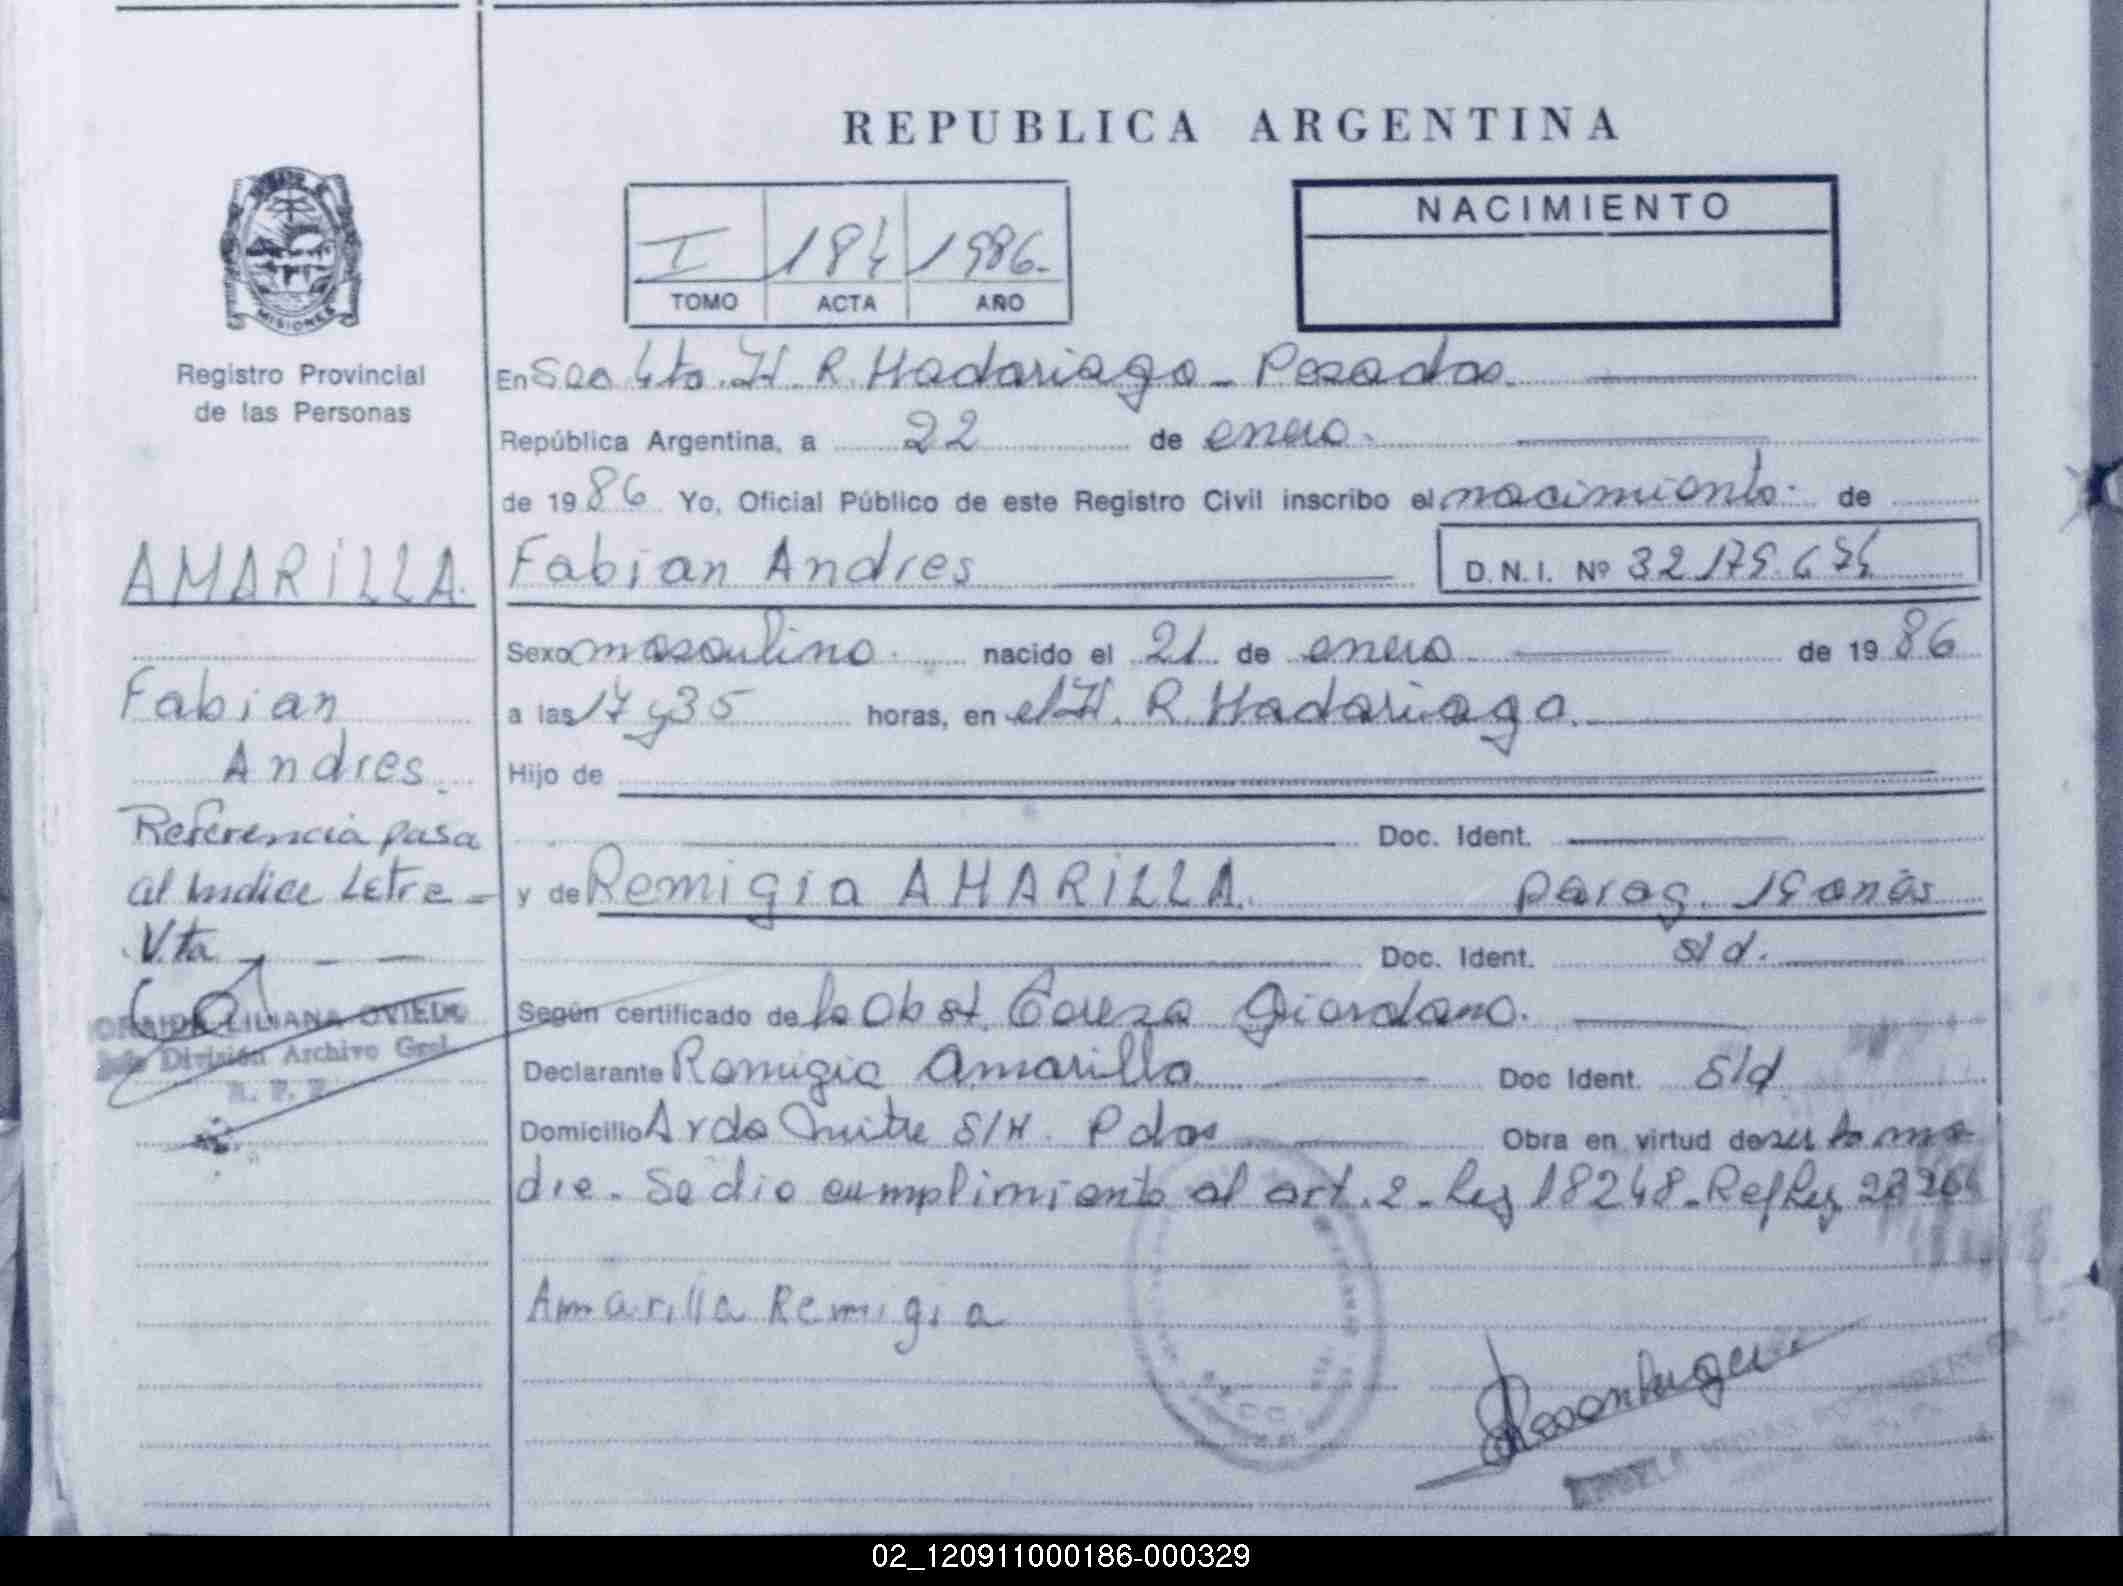 REPUBLICA ARGENTINA
MISIONES
Registro Provincial
de las Personas
I 184 1986.
TOMO ACTA AÑO
NACIMIENTO
En Sec 4ta. H. R. Madariaga - Posadas.
República Argentina, a 22 de enero.
de 1986 Yo, Oficial Público de este Registro Civil inscribo el nacimiento. de
AMARILLA.
Fabian Andres
D.N.I. Nº 32.175.674
Sexo masculino. nacido el 21 de enero de 1986
Fabian
Andres.
a las 17 y 35 horas, en el H. R. Madariaga.
Hijo de
Referencia pasa
al Indice Letra -
Vta
Doc. Ident.
y de Remigia AMARILLA. parag. 19 anos
Doc. Ident. s/d.
LILIANA OVIEDO
Jefe División Archivo Gral.
R. P. P.
Según certificado de la Obst. Teresa Giordano.
Declarante Remigia Amarilla Doc Ident. S/d
Domicilio Avda Mitre S/N. Pdas Obra en virtud de ser la ma-
dre. Se dio cumplimiento al art. 2 - Ley 18248 - Ref Ley
Amarilla Remigia
02_120911000186-000329